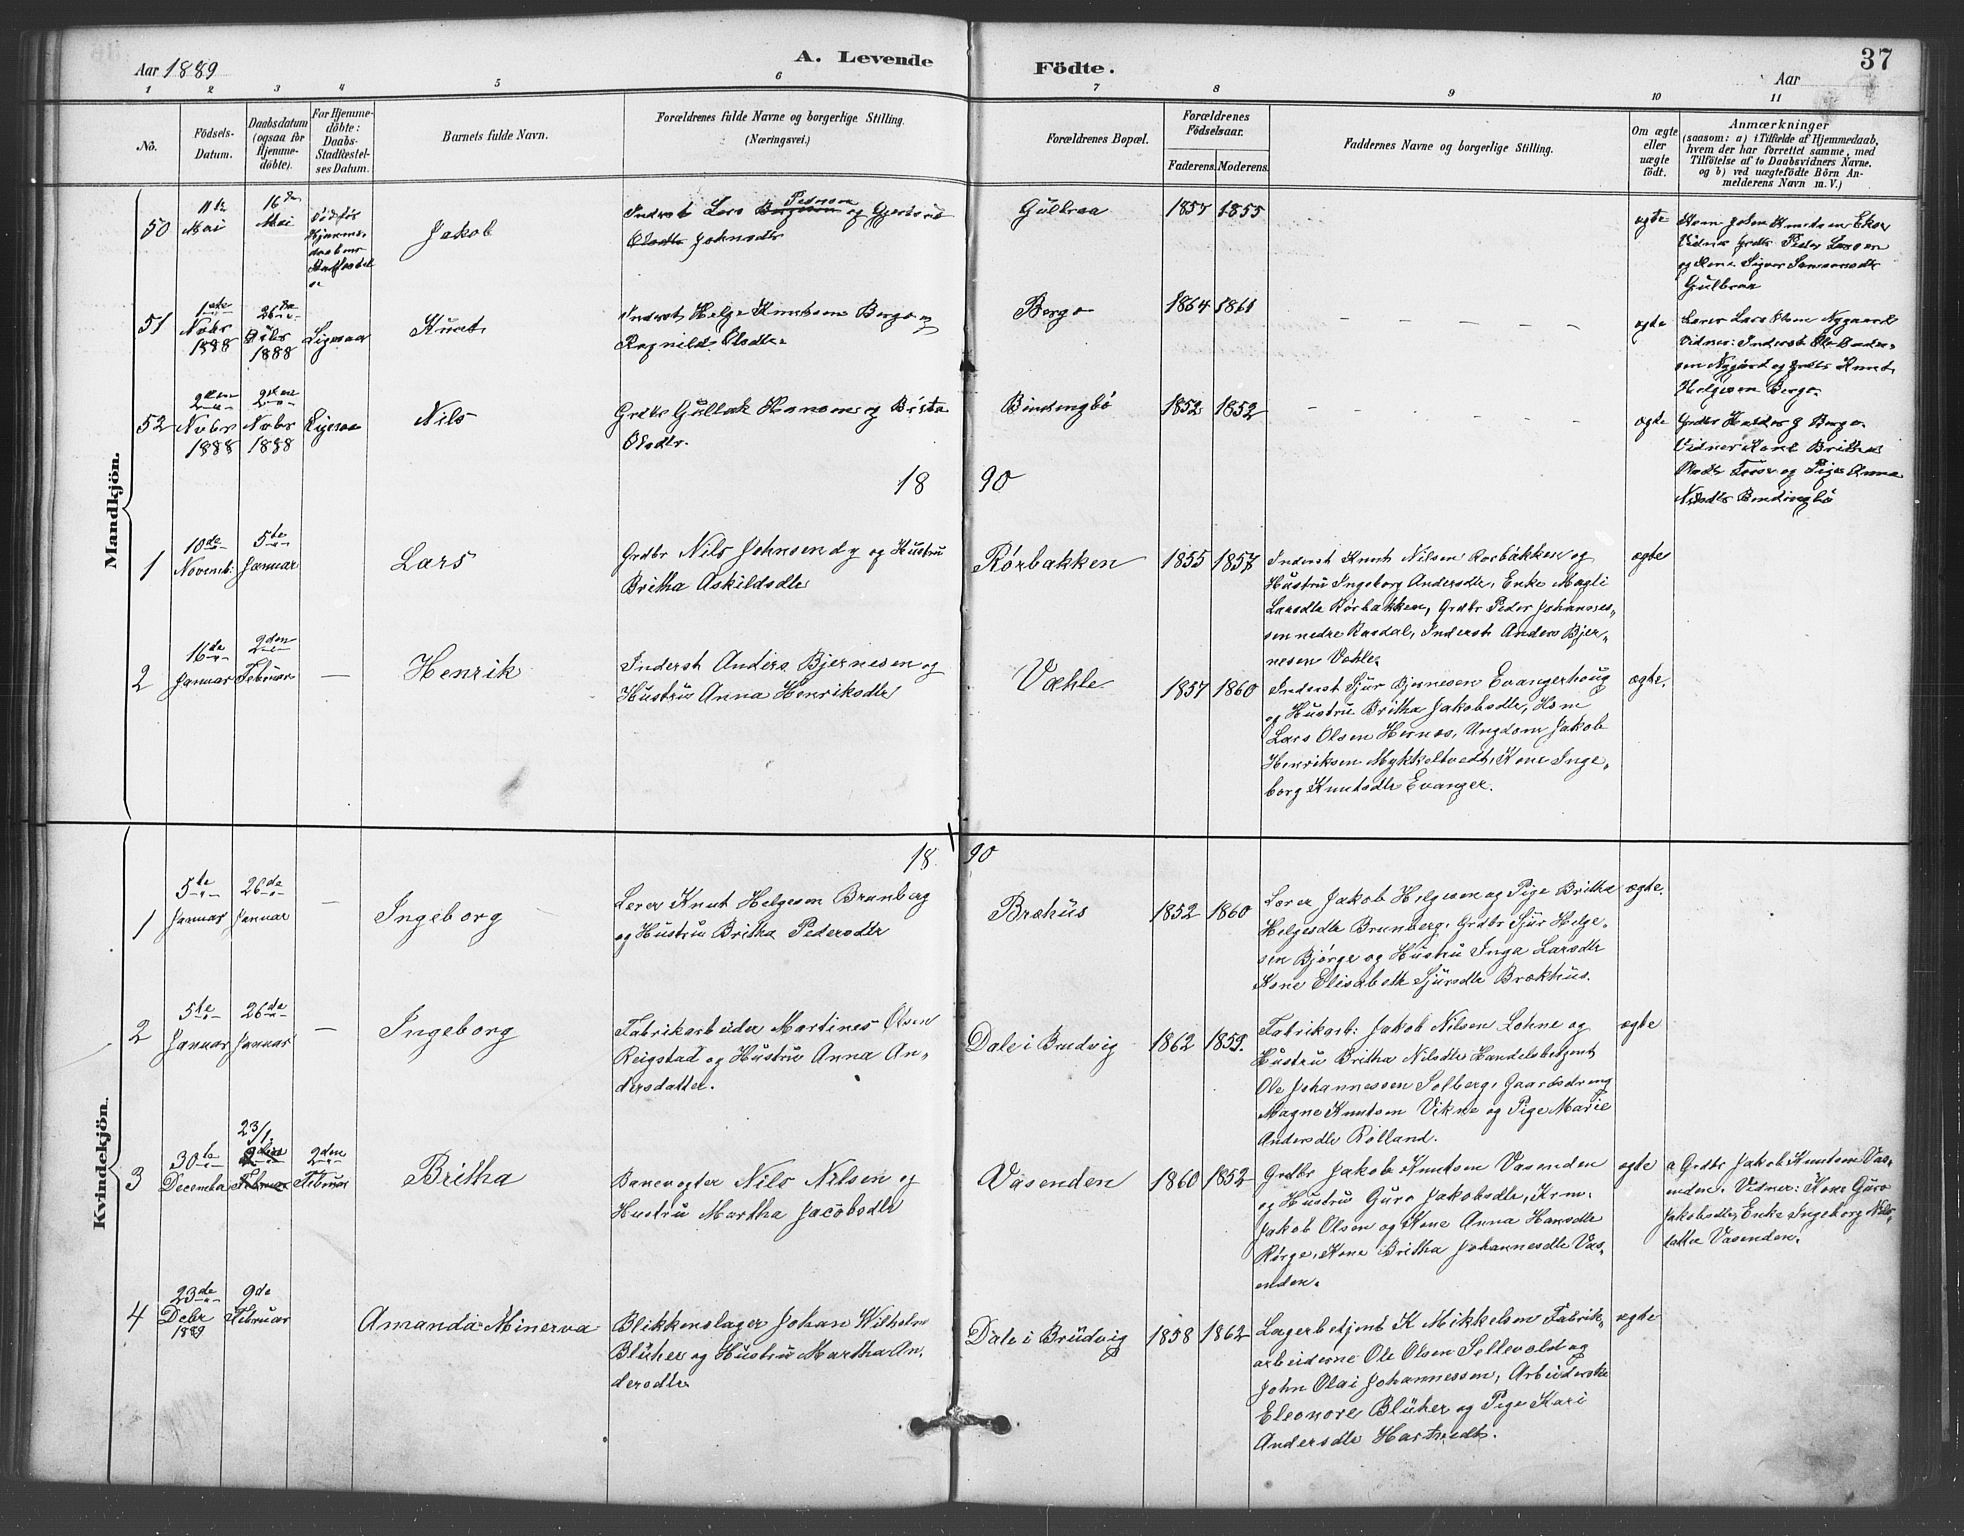 Aar 1889
A. Levende
Födte.
Aar
37
1 2 3 4 5 6 7 8 9 10 11
No.
Födsels-
Datum.
Daabsdatum
(ogsaa for
Hjemme-
döbte).
For Hjemme-
döbte:
Daabs-
Stadfestel-
ses Datum.
Barnets fulde Navn.
Forældrenes fulde Navne og borgerlige Stilling.
(Næringsvei.)
Forældrenes Bopæl.
Forældrenes
Födselsaar.
Faderens. Moderens.
Faddernes Navne og borgerlige Stilling.
Om ægte
eller
uægte
födt.
Anmærkninger
(saasom: a) i Tilfælde af Hjemmedaab,
hvem der har forrettet samme, med
Tilföielse af to Daabsvidners Navne.
og b) ved uægtefödte Börn An-
melderens Navn m. V.)
Mandkjön.
50
11te
Mai
16de
Mai
Jakob
Inderst Lars Pedersen og Gjertrud
Johnsdtr
Gulbraa
1857 1855
ægte
Kone Sigver Samsonsdtr
Gulbraa
51
1ste
Novbr
1888
26de
Dcbr
1888
Ligesaa
Knut
Inderst Helge Knutsen Bergo og
Ragnild Olsdtr.
Bergo
1864 1861
ægte
Lærer Lars Olsen Nygaard
Vidner: Inderst Ole Ander-
sen Nygård og Grdbr Knut
Helgesen Bergo.
52
2den
Novbr
1888
2den
Novbr
1888
Ligesaa
Nils
Grdbr Gullak Hansen og Brita
Olsdtr.
Bindingbö
1852 1852
ægte
Vidner Kone Britha
og Pige Anna
Nilsdtr Bindingbö
18 90
1
10de
Novemb:
5te
Januar
Lars
Grdbr Nils Johnsen dy og Hustru
Britha Askildsdtr
Rörbakken
1855 1857
Inderst Knut Nilsen Rorbakken og
Hustru Ingeborg Andersdtr, Enke Magli
Larsdtr Rörbakken, Grdbr Peder Johannes-
sen nedre Rasdal, Inderst Anders Bjer-
nesen Væhle.
ægte
2
16de
Januar
2den
Februar
—
Henrik
Inderst Anders Bjernesen og
Hustru Anna Henriksdtr
Væhle
1857 1860
Inderst Sjur Bjernesen Evangerhoug
og Hustru Britha Jakobsdtr, Kone
Lars Olsen Hernes, Ungdom Jakob
Henriksen Mykkeltvedt, Kone Inge-
borg Knutsdtr Evanger.
ægte.
Kvindekjön.
18 90
1
5te
Januar
26de
Januar
—
Ingeborg
Lærer Knut Helgesen Brunberg
og Hustru Britha Pedersdtr
Brækhus
1852 1860
Lærer Jakob Helgesen og Pige Britha
Helgesdtr Brunberg, Grdbr Sjur Helge-
sen Bjørge og Hustru Inga Larsdtr
Kone Elisabeth Sjursdtr Brækhus.
ægte.
2
5te
Januar
26de
Januar
—
Ingeborg
Fabrikarbeider Martines Olsen
Reigstad og Hustru Anna An-
dersdatter.
Dale i Brudvig
1862 1859.
Fabrikarb: Jakob Nilsen Lohne og
Hustru Britha Nilsdtr Handelsbetjent
Ole Johannessen Solberg, Gaardsdreng
Magne Knutsen Vikne og Pige Marie
Andersdtr Rolland.
ægte
3
30te
December
23/1
2den
Februar
2den
Februar
Britha
Banevogter Nils Nilsen og
Hustru Martha Jacobsdtr
Vasenden
1860 1852
Grdbr Jakob Knutsen Vasenden
og Hustru Guro Jakobsdtr,
Jakob Olsen og Kone Anna Hansdtr
Rörge, Kone Britha Johannesdtr Vas-
enden.
ægte
a Grdbr Jakob Knutsen Vas-
enden. Vidner: Kone Guro
Jakobsdtr, Enke Ingeborg Nils-
datter Vasenden.
4
23de
Debr
1889
9de
Februar
Amanda Minerva
Blikkenslager Johan Wilhelm
Blüher og Hustru Martha An-
dersdtr
Dale i Brudvig
1858 1862
Lagerbetjent K Mikkelsen Fabrik-
arbeiderne Ole Olsen Sellevold og
John Olai Johannessen, Arbeiderske
Eleonore Blüher og Pige Kari
Andersdtr Hartvedt.
ægte